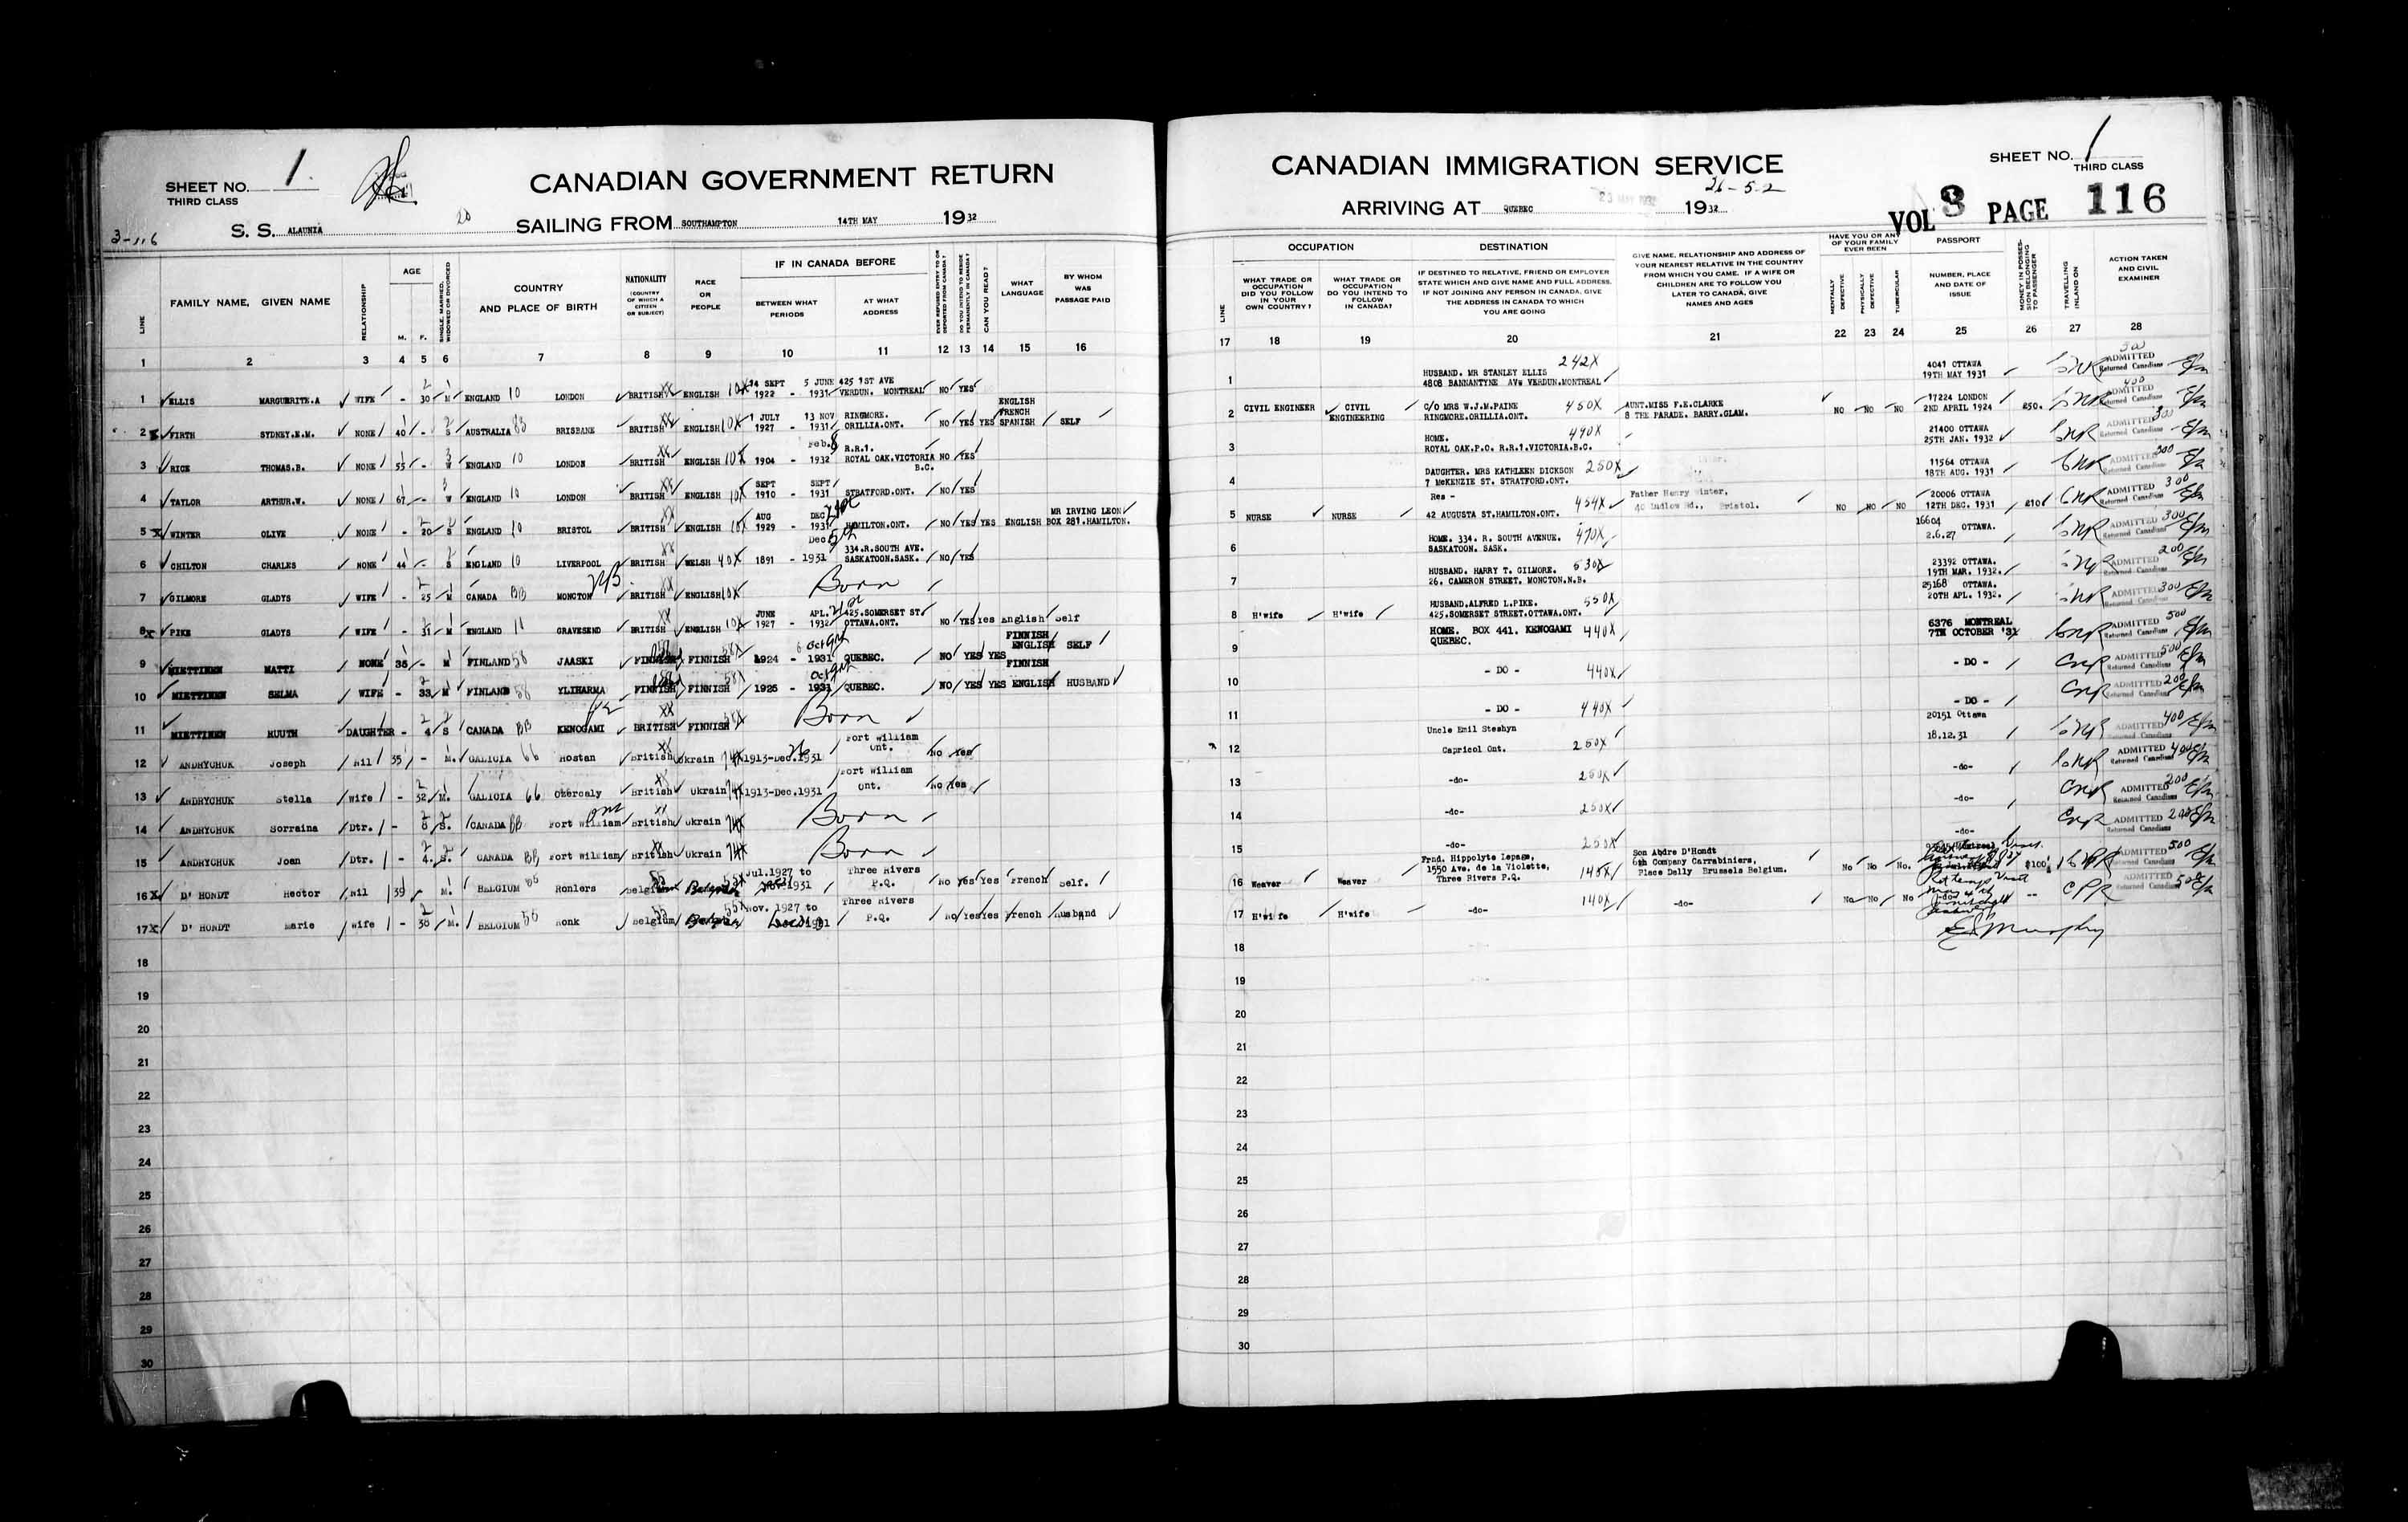 SHEET NO. 1.
THIRD CLASS
CANADIAN GOVERNMENT RETURN
S. S. ALAUNIA 20 SAILING FROM SOUTHAMPTON 14TH MAY 1932
3-116
LINE
FAMILY NAME, GIVEN NAME
RELATIONSHIP
AGE
M. F.
SINGLE, MARRIED, WIDOWED OR DIVORCED
COUNTRY AND PLACE OF BIRTH
NATIONALITY (COUNTRY OF WHICH A CITIZEN OR SUBJECT)
RACE OR PEOPLE
IF IN CANADA BEFORE
BETWEEN WHAT PERIODS
AT WHAT ADDRESS
EVER REFUSED ENTRY TO OR DEPORTED FROM CANADA?
DO YOU INTEND TO RESIDE PERMANENTLY IN CANADA?
CAN YOU READ?
WHAT LANGUAGE
BY WHOM WAS PASSAGE PAID
1 2 3 4 5 6 7 8 9 10 11 12 13 14 15 16
1 ELLIS MARGUERITE.A WIFE - 30 M ENGLAND 10 LONDON BRITISH ENGLISH 10X 14 SEPT 1922 - 5 JUNE 1931 425 1ST AVE VERDUN. MONTREAL NO YES
2 FIRTH SYDNEY.E.M. NONE 40 - S AUSTRALIA 83 BRISBANE BRITISH ENGLISH 10X 1 JULY 1927 - 13 NOV 1931 RINGMORE. ORILLIA.ONT. NO YES YES ENGLISH FRENCH SPANISH SELF
3 RICE THOMAS.B. NONE 55 - W ENGLAND 10 LONDON BRITISH ENGLISH 10X 1904 - Feb. 8 1932 R.R.1. ROYAL OAK.VICTORIA B.C. NO YES
4 TAYLOR ARTHUR.W. NONE 67 - W ENGLAND 10 LONDON BRITISH ENGLISH 10X SEPT 1910 - SEPT 1931 STRATFORD.ONT. NO YES
5 WINTER OLIVE NONE - 20 S ENGLAND 10 BRISTOL BRITISH ENGLISH 10X AUG 1929 - DEC 1931 HAMILTON.ONT. NO YES YES ENGLISH MR IRVING LEON BOX 281.HAMILTON.
6 CHILTON CHARLES NONE 44 - S ENGLAND 10 LIVERPOOL BRITISH WELSH 40X 1891 - Dec 5th 1931 334.R.SOUTH AVE. SASKATOON.SASK. NO YES
7 GILMORE GLADYS WIFE - 25 M CANADA BB MONCTON NB. BRITISH ENGLISH 10X Born
8 PIKE GLADYS WIFE - 31 M ENGLAND GRAVESEND BRITISH ENGLISH 10X JUNE 1927 - APL. 1932 425.SOMERSET ST OTTAWA.ONT. NO YES Yes English Self
9 MIETTINEN MATTI NONE 35 - M FINLAND 58 JAASKI FINNISH FINNISH 58X 1924 - Oct 1931 QUEBEC. NO YES YES FINNISH ENGLISH SELF
10 MIETTINEN SELMA WIFE - 33 M FINLAND 58 YLIHARMA FINNISH FINNISH 58X 1925 - Oct 1931 QUEBEC. NO YES YES FINNISH ENGLISH HUSBAND
11 MIETTINEN RUUTH DAUGHTER - 4 S CANADA BB KENOGAMI BRITISH FINNISH 58X Born
12 ANDRYCHUK Joseph Nil 35 - M. GALICIA 66 Rostan British Ukrain 74X 1913-Dec.1931 Fort William Ont. No Yes
13 ANDRYCHUK Stella Wife - 32 M. GALICIA 66 Ozercaly British Ukrain 74X 1913-Dec.1931 Fort William Ont. No Yes
14 ANDRYCHUK Sorraina Dtr. - 8 S. CANADA BB Fort William Ont British Ukrain 74X Born
15 ANDRYCHUK Joan Dtr. - 4. S. CANADA BB Fort William British Ukrain 74X Born
16 D' HONDT Hector Nil 39 M. BELGIUM Ronlers Belgium Belgian 55X Jul.1927 to 1931 Three Rivers P.Q. No Yes Yes French Self.
17 D' HONDT Marie Wife - 30 M. BELGIUM Ronk Belgium Belgian 55X Nov. 1927 to 1931 Three Rivers P.Q. No Yes Yes French Husband
18
19
20
21
22
23
24
25
26
27
28
29
30
CANADIAN IMMIGRATION SERVICE
SHEET NO. 1
THIRD CLASS
26-5-2
ARRIVING AT QUEBEC 23 MAY 1932 1932
VOL 3 PAGE 116
LINE
OCCUPATION
WHAT TRADE OR OCCUPATION DID YOU FOLLOW IN YOUR OWN COUNTRY?
WHAT TRADE OR OCCUPATION DO YOU INTEND TO FOLLOW IN CANADA?
DESTINATION
IF DESTINED TO RELATIVE, FRIEND OR EMPLOYER STATE WHICH AND GIVE NAME AND FULL ADDRESS. IF NOT JOINING ANY PERSON IN CANADA, GIVE THE ADDRESS IN CANADA TO WHICH YOU ARE GOING
GIVE NAME, RELATIONSHIP AND ADDRESS OF YOUR NEAREST RELATIVE IN THE COUNTRY FROM WHICH YOU CAME. IF A WIFE OR CHILDREN ARE TO FOLLOW YOU LATER TO CANADA, GIVE NAMES AND AGES
HAVE YOU OR ANY OF YOUR FAMILY EVER BEEN
MENTALLY DEFECTIVE
PHYSICALLY DEFECTIVE
TUBERCULAR
PASSPORT
NUMBER, PLACE AND DATE OF ISSUE
MONEY IN POSSESSION BELONGING TO PASSENGER
TRAVELLING INLAND ON
ACTION TAKEN AND CIVIL EXAMINER
17 18 19 20 21 22 23 24 25 26 27 28
1 HUSBAND. MR STANLEY ELLIS 4808 BANNANTYNE AVE VERDUN.MONTREAL 242X 4041 OTTAWA 19TH MAY 1931 CNR ADMITTED Returned Canadians
2 CIVIL ENGINEER CIVIL ENGINEERING C/O MRS W.J.M.PAINE RINGMORE.ORILLIA.ONT. 450X AUNT.MISS F.E.CLARKE 8 THE PARADE. BARRY.GLAM. NO NO NO 17224 LONDON 2ND APRIL 1924 £50. CNR ADMITTED 400 Returned Canadians
3 HOME. ROYAL OAK.P.O. R.R.1.VICTORIA.B.C. 490X 21400 OTTAWA 25TH JAN. 1932 CNR ADMITTED 300 Returned Canadians
4 DAUGHTER. MRS KATHLEEN DICKSON 7 McKENZIE ST. STRATFORD.ONT. 250X 11564 OTTAWA 18TH AUG. 1931 CNR ADMITTED 300 Returned Canadians
5 NURSE NURSE Res - 42 AUGUSTA ST.HAMILTON.ONT. 454X Father Henry Winter, 40 Ludlow Rd., Bristol. NO NO NO 20006 OTTAWA 12TH DEC. 1931 £10 CNR ADMITTED 300 Returned Canadians
6 HOME. 334. R. SOUTH AVENUE. SASKATOON. SASK. 470X 16604 OTTAWA. 2.6.27 CNR ADMITTED 300 Returned Canadians
7 HUSBAND. HARRY T. GILMORE. 26. CAMERON STREET. MONCTON.N.B. 530X 23392 OTTAWA. 19TH MAR. 1932. CNR ADMITTED 200 Returned Canadians
8 H'wife H'wife HUSBAND.ALFRED L.PIKE. 425.SOMERSET STREET.OTTAWA.ONT. 550X 25168 OTTAWA. 20TH APL. 1932. CNR ADMITTED 300 Returned Canadians
9 HOME. BOX 441. KENOGAMI QUEBEC. 440X 6376 MONTREAL 7TH OCTOBER '31 CNR ADMITTED 500 Returned Canadians
10 - DO - 440X - DO - CNR ADMITTED 500 Returned Canadians
11 - DO - 440X - DO - CNR ADMITTED 200 Returned Canadians
12 Uncle Emil Steshyn Capricol Ont. 250X 20151 Ottawa 18.12.31 CNR ADMITTED 400 Returned Canadians
13 -do- 250X -do- CNR ADMITTED 400 Returned Canadians
14 -do- 250X -do- CNR ADMITTED 200 Returned Canadians
15 -do- 250X -do- CNR ADMITTED 200 Returned Canadians
16 Weaver Weaver Frnd. Hippolyte Lepage, 1550 Ave. de la Violette, Three Rivers P.Q. 140X Son Abdre D'Hondt 6th Company Carrabiniers, Place Dally Brussels Belgium. No No No. $100 CPR ADMITTED 500 Returned Canadians
17 H'wife H'wife -do- 140X -do- No No No -do- -- CPR ADMITTED 500 Returned Canadians
E Murphy
18
19
20
21
22
23
24
25
26
27
28
29
30